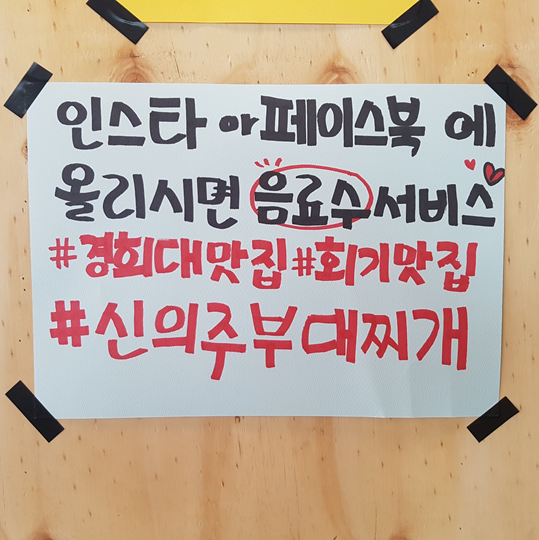 인스타 or 페이스북 에
올리시면 음료수 서비스
#경희대맛집 #회기맛집
#신의주부대찌개